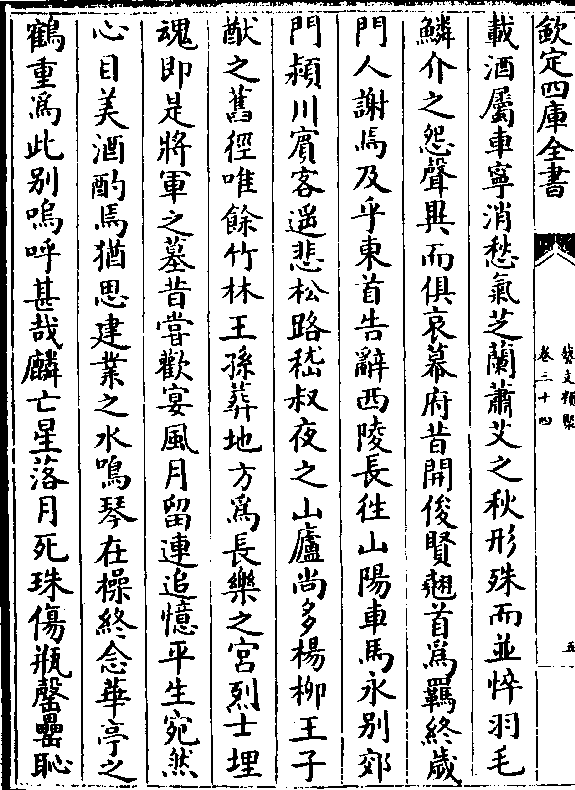 欽定四庫全書
藝文類聚
卷三十四
五
載酒屬車寧消愁氣芝蘭蕭艾之秋形殊而並悴羽毛
鱗介之怨聲異而俱哀幕府昔開俊賢翹首為羈終歲
門人謝焉及乎東首告辭西陵長往山陽車馬永別郊
門潁川賓客遥悲松路嵇叔夜之山廬尚多楊柳王子
猷之舊徑唯餘竹林王孫葬地方為長樂之宮烈士埋
魂即是將軍之墓昔嘗歡宴風月留連追憶平生宛然
心目美酒酌焉猶思建業之水鳴琴在操終念華亭之
鶴重為此別嗚呼甚哉麟亡星落月死珠傷瓶罄罍恥